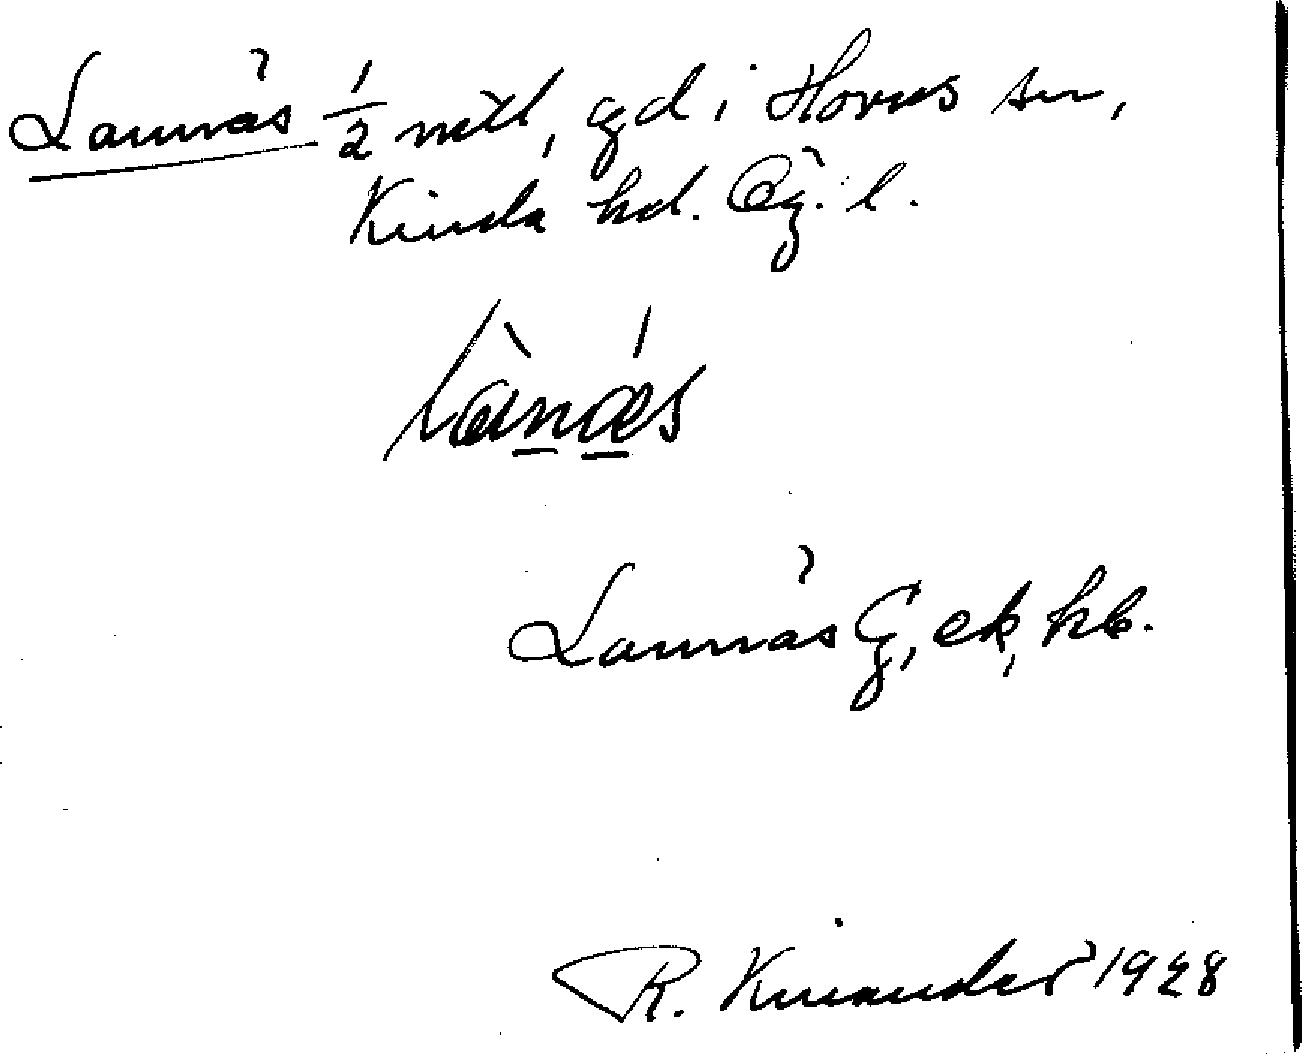 Lannäs 1/2 mtl, gd i Horns sn,
Kinda hd. Ög. l.
Lannäs G, ek, kb.
R. Kinander 1928